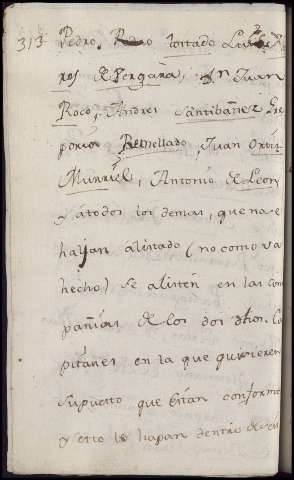 313 Pedro, hurtado
ros de Vergara, Dn Juan
Roco, Andres Santibañez, Gre
porio Rebhellado, Juan Ortiz
Munriel, Antonio de Leon
y atodos los demas, que nose
hallan alistado (no como va
hecho) se alisten en las com
pañias de los dos dhos. Ca
pitanes en la que quisieren
supuesto que están conforme
y esto lo hagan dentro de